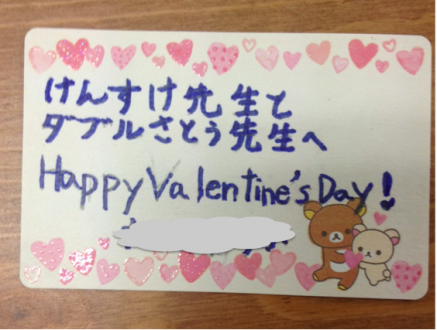 けんすけ先生と
ダブルさとう先生へ
Happy Valentine's Day!